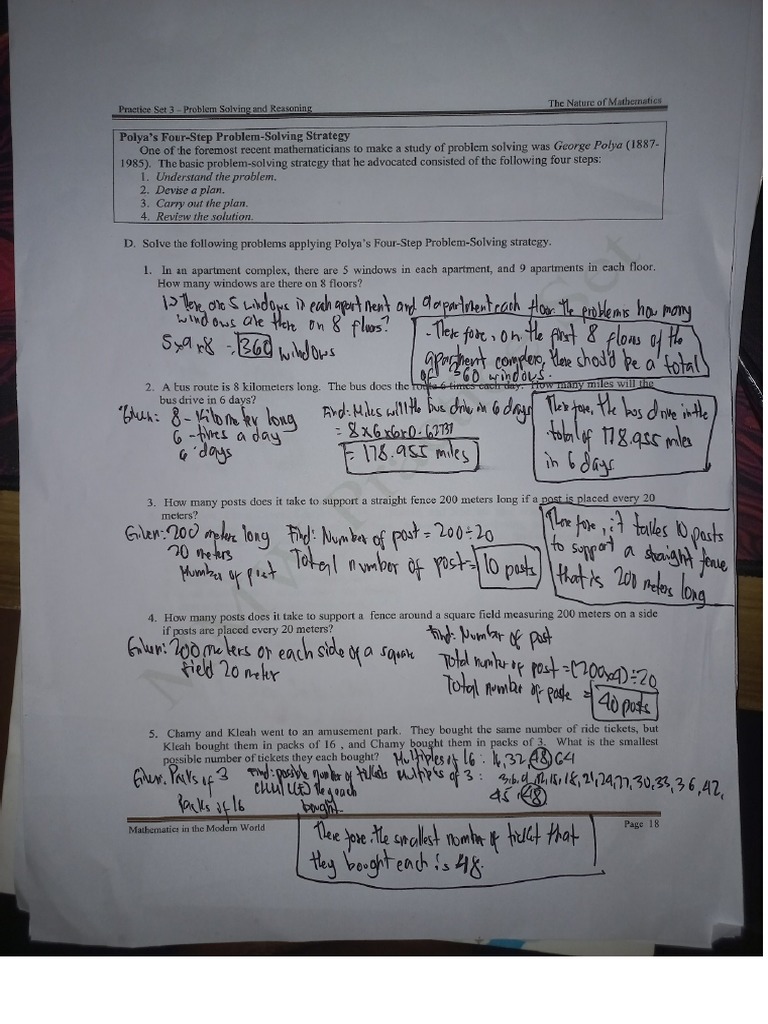 Practice Set 3 – Problem Solving and Reasoning The Nature of Mathematics
Polya's Four-Step Problem-Solving Strategy
One of the foremost recent mathematicians to make a study of problem solving was George Polya (1887-
1985). The basic problem-solving strategy that he advocated consisted of the following four steps:
1. Understand the problem.
2. Devise a plan.
3. Carry out the plan.
4. Review the solution.
D. Solve the following problems applying Polya's Four-Step Problem-Solving strategy.
1. In an apartment complex, there are 5 windows in each apartment, and 9 apartments in each floor.
How many windows are there on 8 floors?
There are 5 windows in each apartment and 9 apartment each floor. the problem is how many
windows are there on 8 floors?
5x9x8 = 360 windows
- Therefore, on the first 8 floors of the
apartment complex, there should be a total
of 360 windows.
2. A bus route is 8 kilometers long. The bus does the route 6 times each day. How many miles will the
bus drive in 6 days?
Given: 8 - kilometer long
6 - times a day
6 days
Find: Miles will the bus drive in 6 days
= 8x6x6x0.62137
= 178.955 miles
Therefore, the bus drive in the
total of 178.955 miles
in 6 days
3. How many posts does it take to support a straight fence 200 meters long if a post is placed every 20
meters?
Given: 200 meters long
20 meters
Number of post
Find: Number of post = 200÷20
Total number of post = 10 posts
Therefore, it takes 10 posts
to support a straight fence
that is 200 meters long
4. How many posts does it take to support a fence around a square field measuring 200 meters on a side
if posts are placed every 20 meters?
Given: 200 meters or each side of a square
field 20 meter
Find: Number of post
Total number of post = (200x4)÷20
Total number of poste = 40 posts
5. Chamy and Kleah went to an amusement park. They bought the same number of ride tickets, but
Kleah bought them in packs of 16 , and Chamy bought them in packs of 3. What is the smallest
possible number of tickets they each bought?
Multiples of 16: 16, 32, 48, 64
Given: Packs of 3
Packs of 16
Find: possible number of tickets
they each
bought
Multiples of 3: 3, 6, 9, 12, 15, 18, 21, 24, 27, 30, 33, 36, 42,
45, 48
Mathematics in the Modern World Page 18
Therefore, the smallest number of ticket that
they bought each is 48.